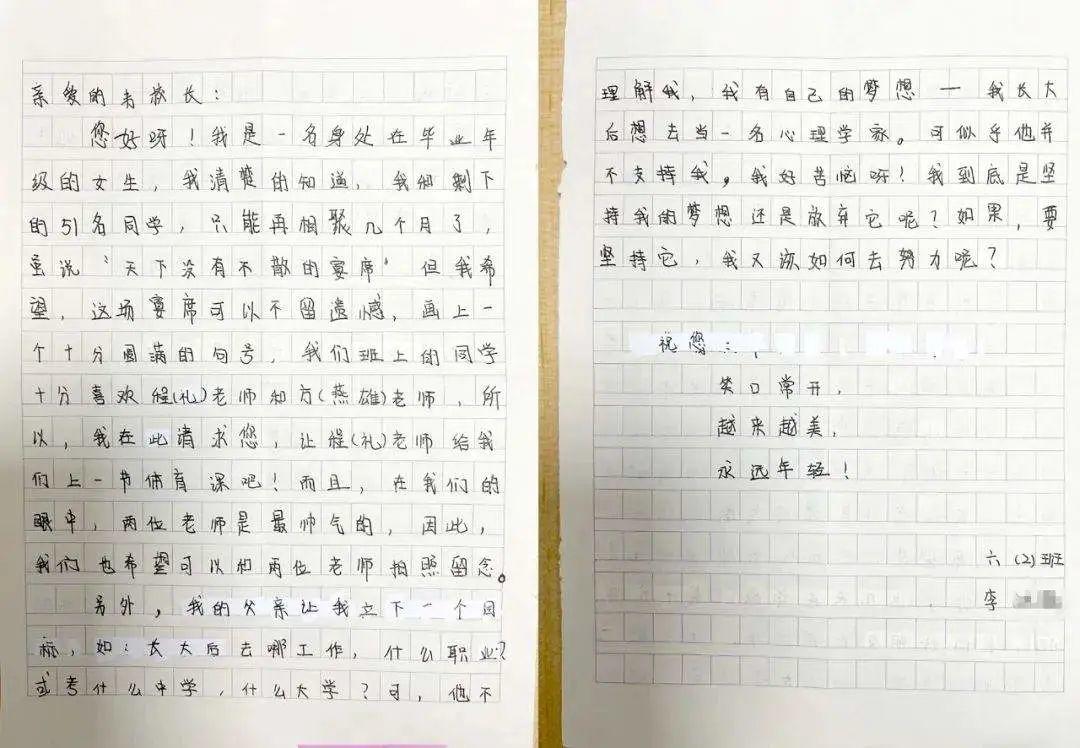 亲爱的韦校长：
您好呀！我是一名身处在毕业年
级的女生，我清楚的知道，我和剩下
的51名同学，只能再相聚几个月了，
虽说“天下没有不散的宴席”但我希
望，这场宴席可以不留遗憾，画上一
个十分圆满的句号，我们班上的同学
十分喜欢程(礼)老师和方(燕雄)老师，所
以，我在此请求您，让程(礼)老师给我
们上一节体育课吧！而且，在我们的
眼中，两位老师是最帅气的，因此，
我们也希望可以和两位老师拍照留念。
另外，我的父亲让我立下一个目
标，如：长大后去哪工作，什么职业？
或考什么中学，什么大学？可，他不
理解我，我有自己的梦想——我长大
后想去当一名心理学家。可似乎他并
不支持我，我好苦恼呀！我到底是坚
持我的梦想还是放弃它呢？如果，要
坚持它，我又该如何去努力呢？
祝您
笑口常开，
越来越美，
永远年轻！
六(2)班
李